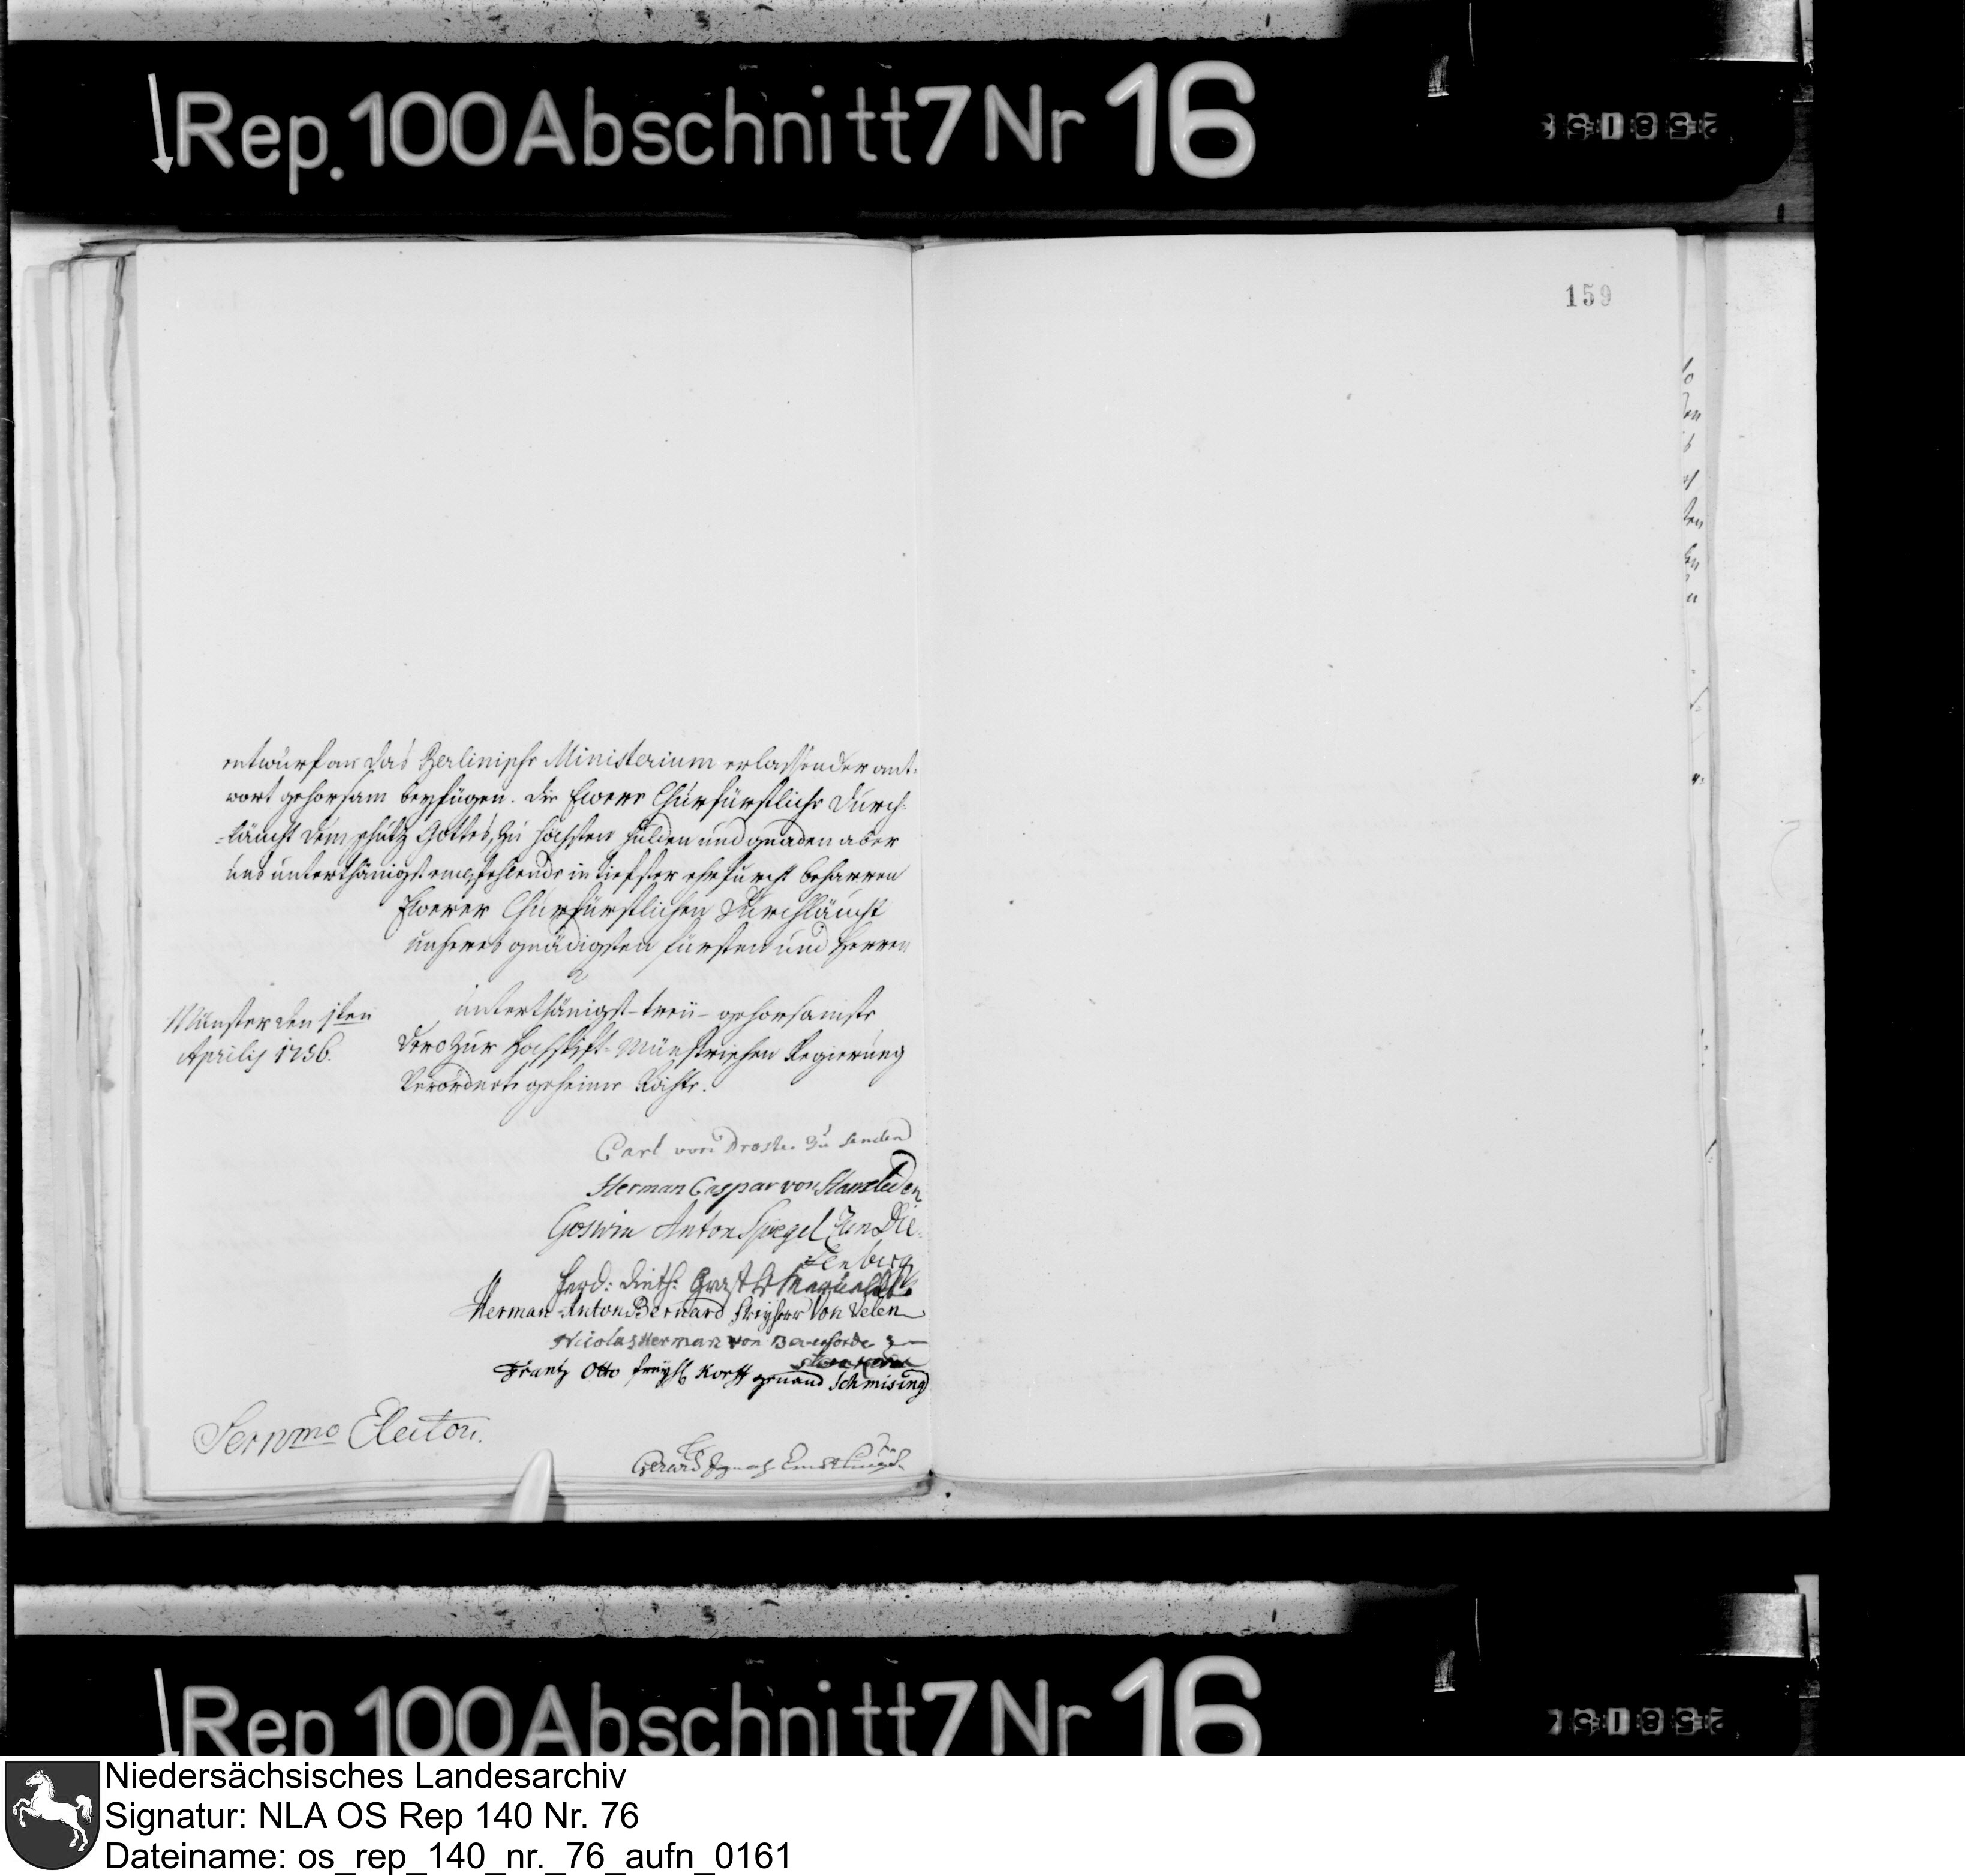 Rep. 100 Abschnitt 7 Nr 16
159
entwurf an das Berlinische Ministerium erlassender ant-
wort gehorsam beyfügen. die Ewere Churfürstliche Durch-
-läucht dem schutz Gottes, zu höchsten hulden und gnaden aber
uns unterthänigst empfehlende in tiefster ehrfurcht beharren
Ewerer Churfürstlichen Durchläucht
unseres gnädigsten fürsten und Herren
Münster den 1ten
Aprilis 1756.
unterthänigst-treü-gehorsamste
dero zur Hochstift-Münstrischen Regierung
Verordnete geheime Räthe.
Carl von Droste zu senden
Herman Caspar von
Goswin Anton Spiegel Zun Die-
senberg
Ferd: Dieth: Graff
Herman Anton Bernard freyherr Von Velen
Nicolas Herman von
Frantz Otto freyh Korff genand Schmising
Serenmo Electori.
Gerard
Rep 100 Abschnitt 7 Nr 16
Niedersächsisches Landesarchiv
Signatur: NLA OS Rep 140 Nr. 76
Dateiname: os_rep_140_nr._76_aufn_0161